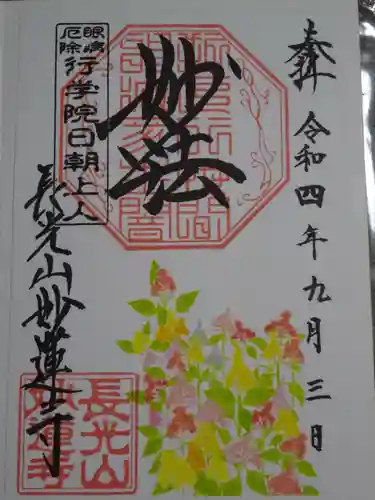 奉拝
令和四年九月三日
妙法
眼病
厄除
行学院日朝上人
長光山妙蓮寺
長光山
妙蓮寺